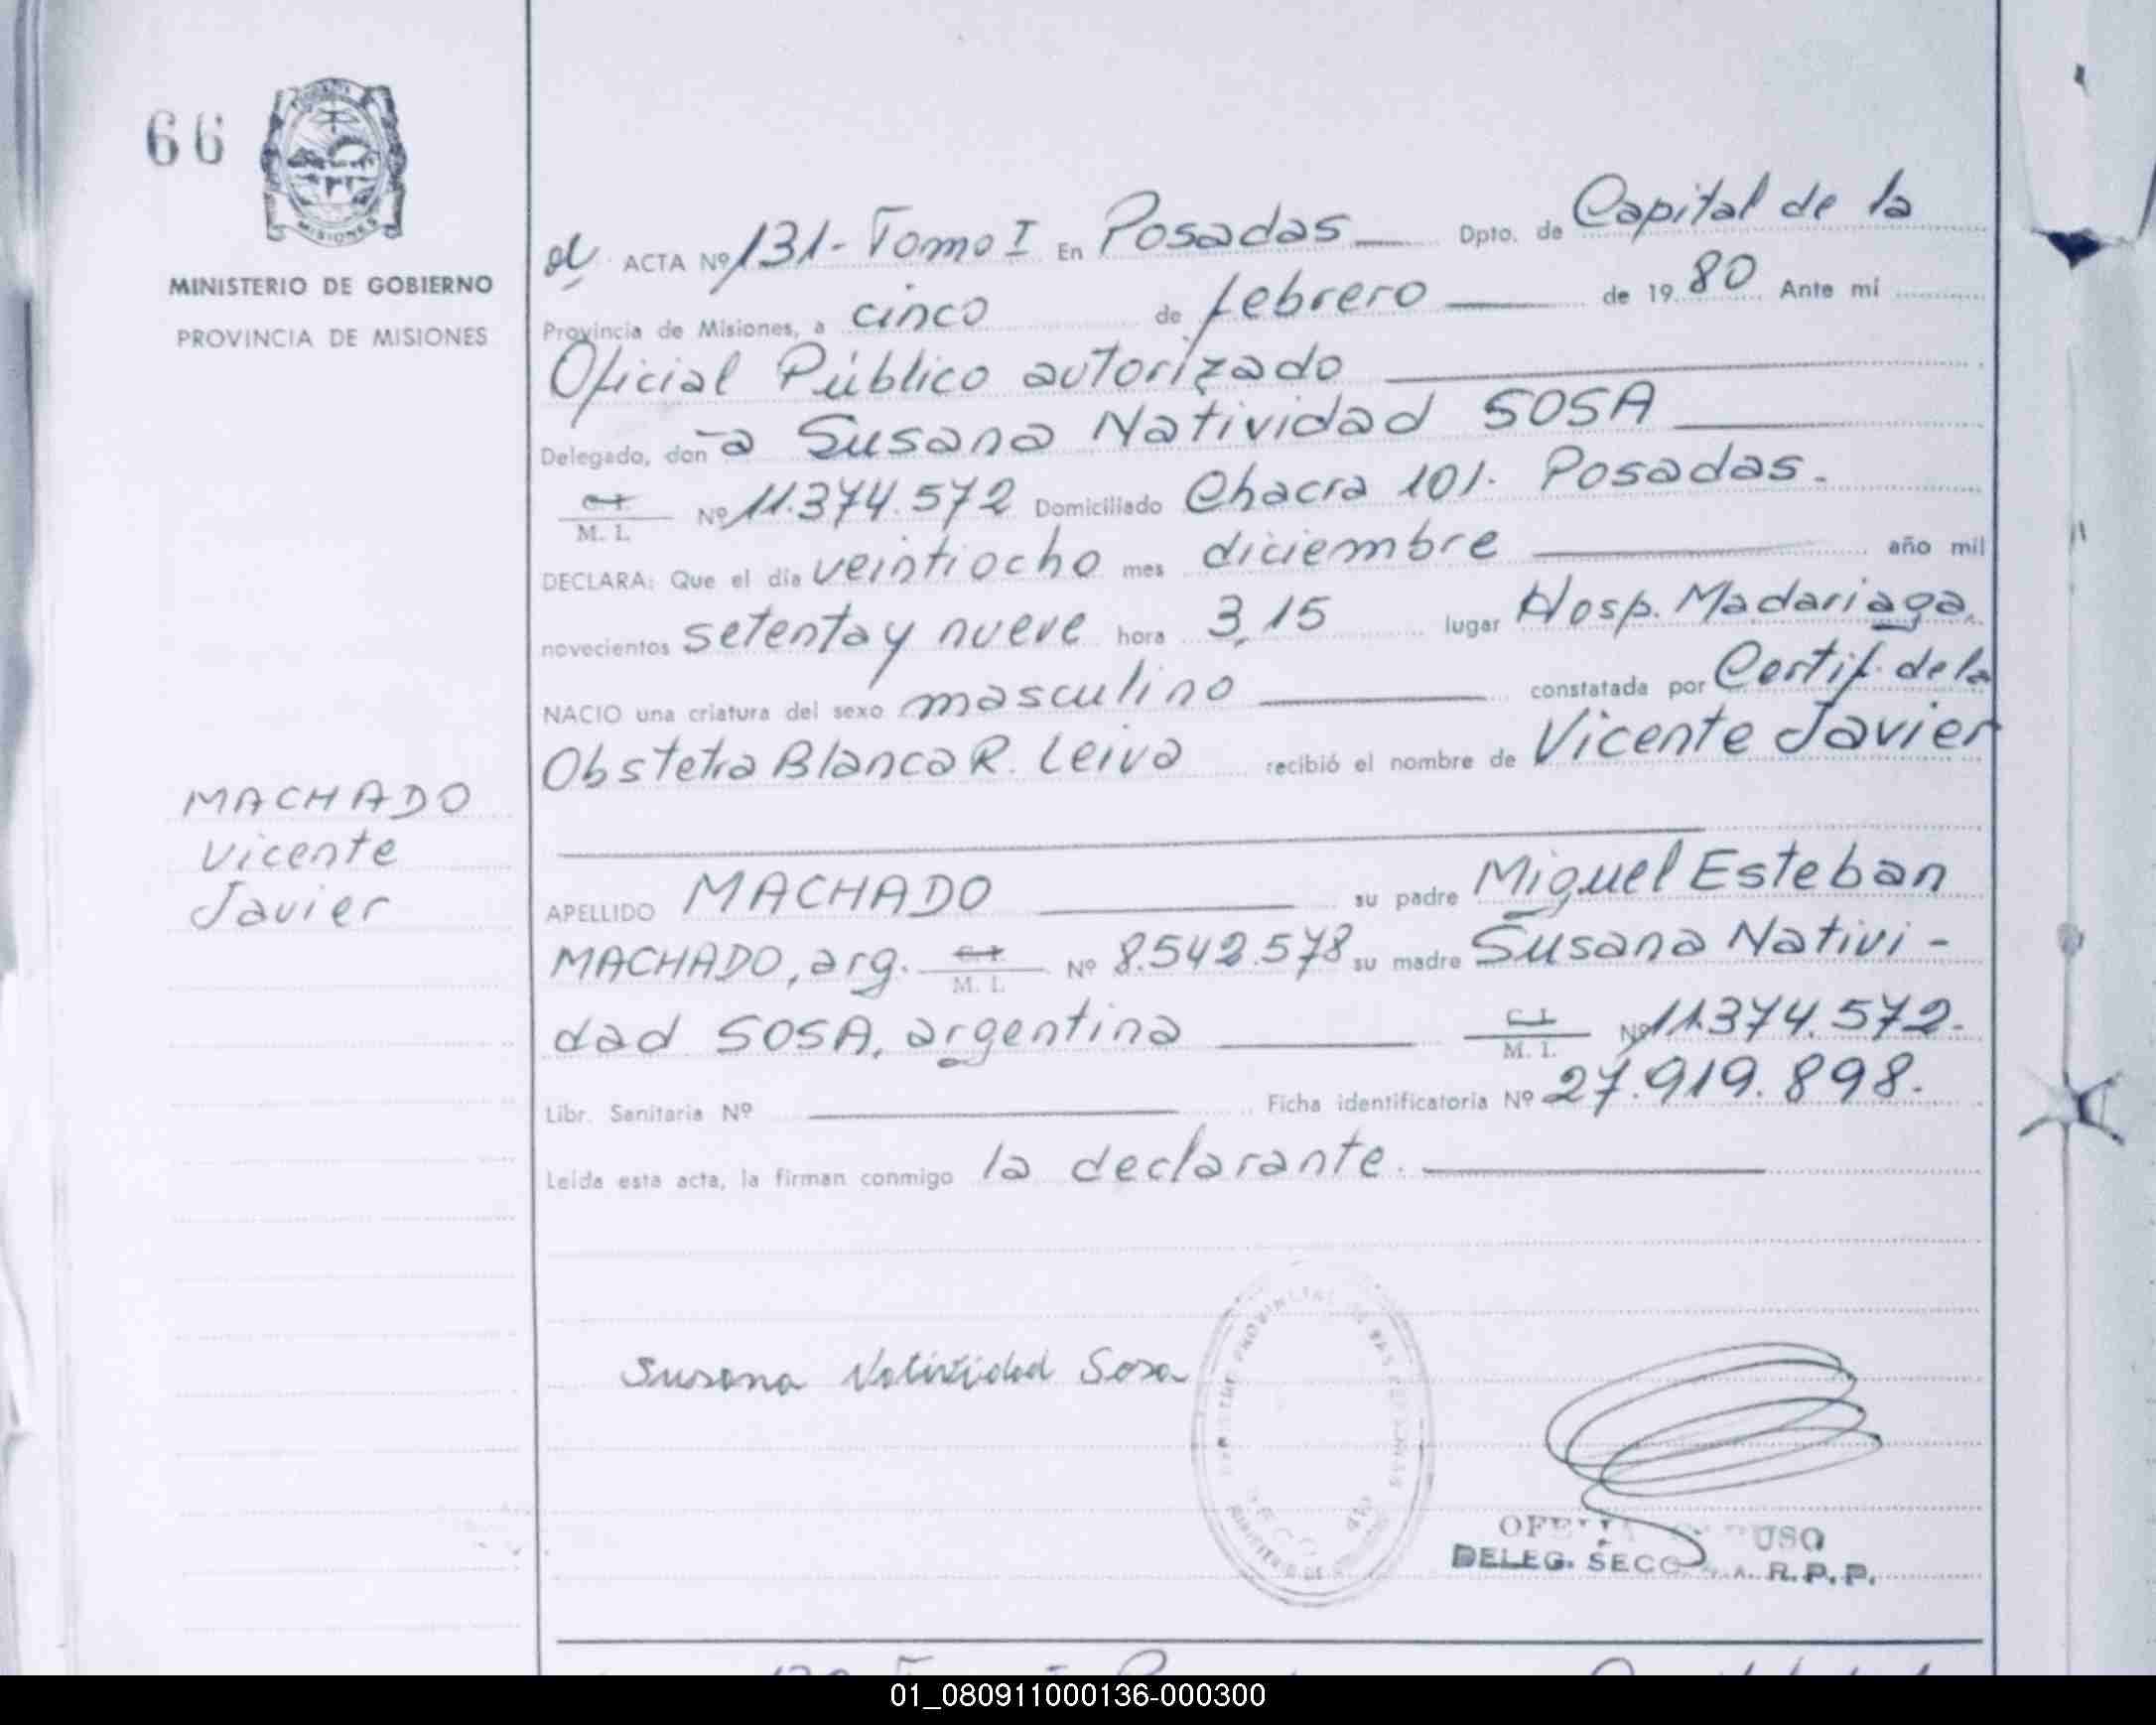 66
MISIONES
MINISTERIO DE GOBIERNO
PROVINCIA DE MISIONES
MACHADO
Vicente
Javier
ACTA Nº 131- Tomo I En Posadas Dpto. de Capital de la
Provincia de Misiones, a cinco de febrero de 1980 Ante mi
Oficial Público autorizado
Delegado, don -a Susana Natividad SOSA
C.I. M. I. Nº 11.374.572 Domiciliado Chacra 101. Posadas.
DECLARA: Que el día veintiocho mes diciembre año mil
novecientos setenta y nueve hora 3,15 lugar Hosp. Madariaga,
NACIO una criatura del sexo masculino constatada por Certif. de la
Obstetra Blanca R. Leiva recibió el nombre de Vicente Javier
APELLIDO MACHADO su padre Miguel Esteban
MACHADO, arg. C.I. M. I. Nº 8.542.578 su madre Susana Nativi-
dad SOSA, argentina C.I. M. I. Nº 11.374.572.
Libr. Sanitaria Nº Ficha identificatoria Nº 27.919.898.
Leída esta acta, la firman conmigo la declarante.
Susana Natividad Sosa
DELEG. SECC. R.P.P.
01_080911000136-000300